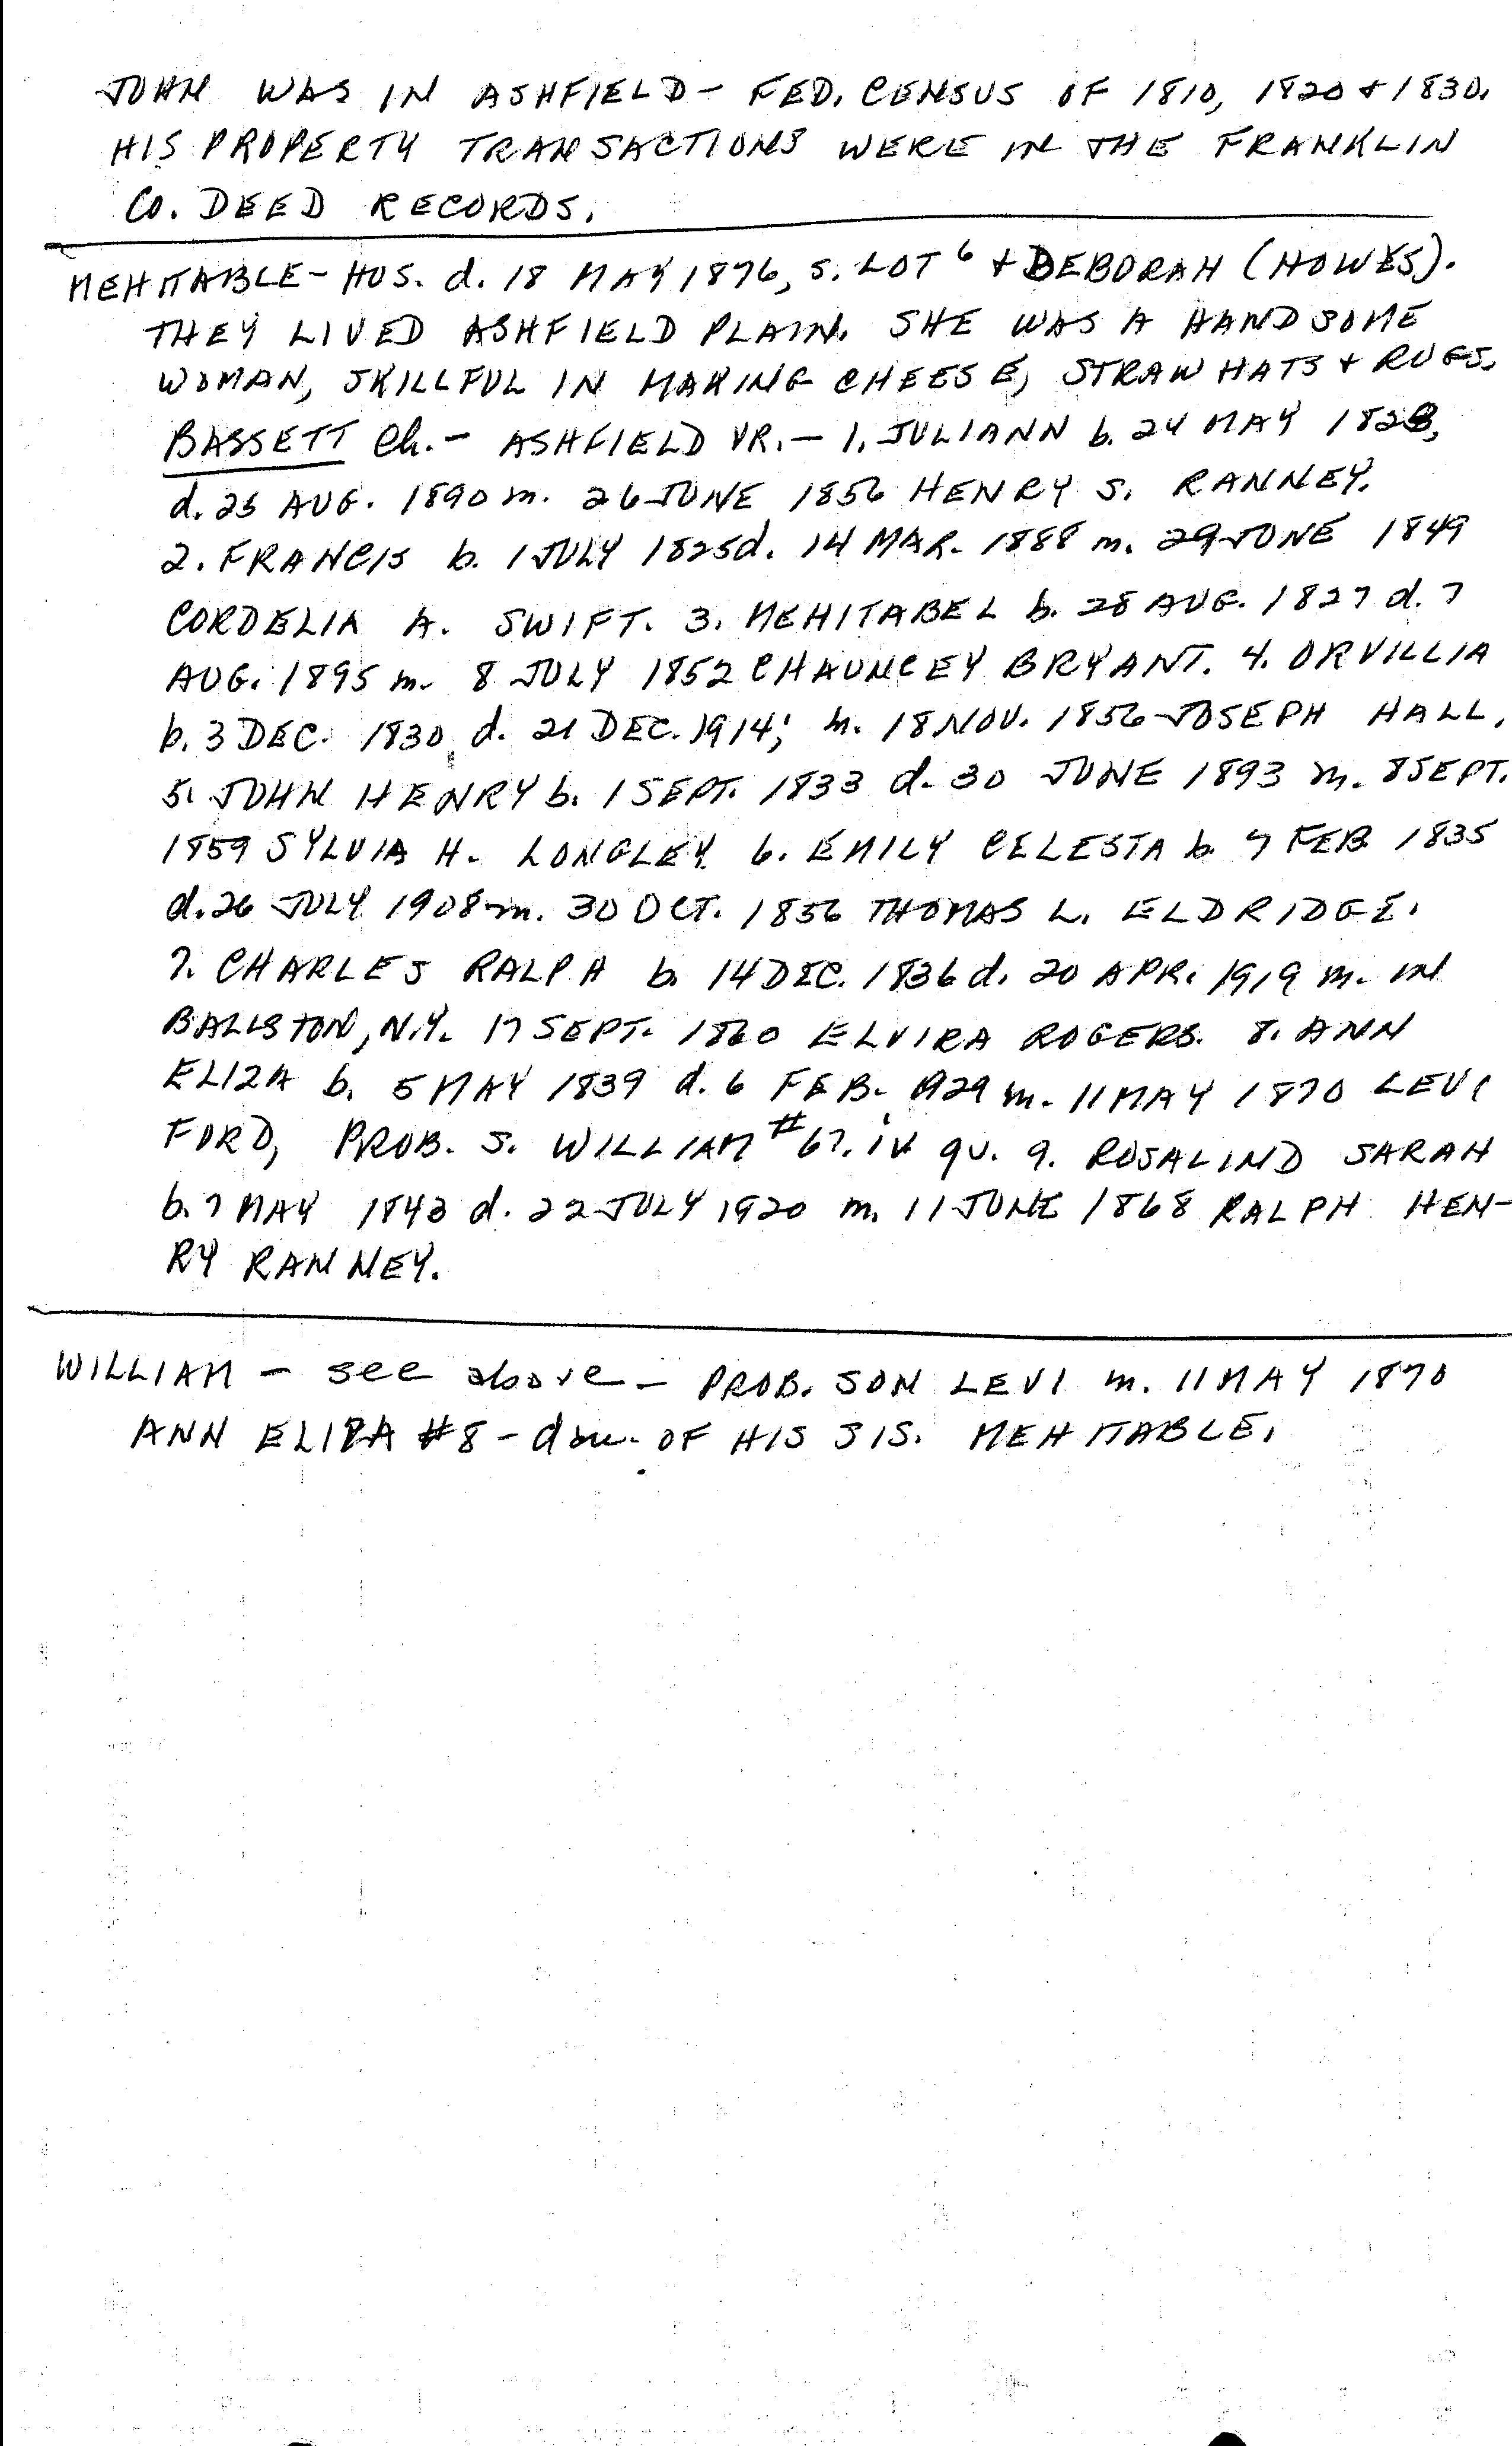 JOHN WAS IN ASHFIELD - FED. CENSUS OF 1810, 1820 + 1830.
HIS PROPERTY TRANSACTIONS WERE IN THE FRANKLIN
CO. DEED RECORDS.
MEHITABLE - HUS. d. 18 MAY 1876, S. LOT 6 + DEBORAH (HOWES).
THEY LIVED ASHFIELD PLAIN. SHE WAS A HANDSOME
WOMAN, SKILLFUL IN MAKING CHEESE, STRAW HATS + RUGS.
BASSETT Ch. - ASHFIELD VR. - 1. JULIANN b. 24 MAY 1823,
d. 25 AUG. 1890 m. 26 JUNE 1856 HENRY S. RANNEY.
2. FRANCIS b. 1 JULY 1825 d. 14 MAR. 1888 m. 29 JUNE 1849
CORDELIA A. SWIFT. 3. MEHITABEL b. 28 AUG. 1827 d. 7
AUG. 1895 m. 8 JULY 1852 CHAUNCEY BRYANT. 4. ORVILLIA
b. 3 DEC. 1830 d. 21 DEC. 1914; m. 18 NOV. 1856 JOSEPH HALL.
5. JOHN HENRY b. 1 SEPT. 1833 d. 30 JUNE 1893 m. 8 SEPT.
1859 SYLVIA H. LONGLEY. 6. EMILY CELESTA b. 7 FEB 1835
d. 26 JULY 1908 m. 30 OCT. 1856 THOMAS L. ELDRIDGE.
7. CHARLES RALPH b. 14 DEC. 1836 d. 20 APR. 1919 m. IN
BALLSTON, N.Y. 17 SEPT. 1860 ELVIRA ROGERS. 8. ANN
ELIZA b. 5 MAY 1839 d. 6 FEB. 1929 m. 11 MAY 1870 LEVI
FORD, PROB. S. WILLIAM #67. iv qv. 9. ROSALIND SARAH
b. 7 MAY 1843 d. 22 JULY 1920 m. 11 JUNE 1868 RALPH HEN-
RY RANNEY.
WILLIAM - see above - PROB. SON LEVI m. 11 MAY 1870
ANN ELIZA #8 - dau. OF HIS SIS. MEHITABLE.